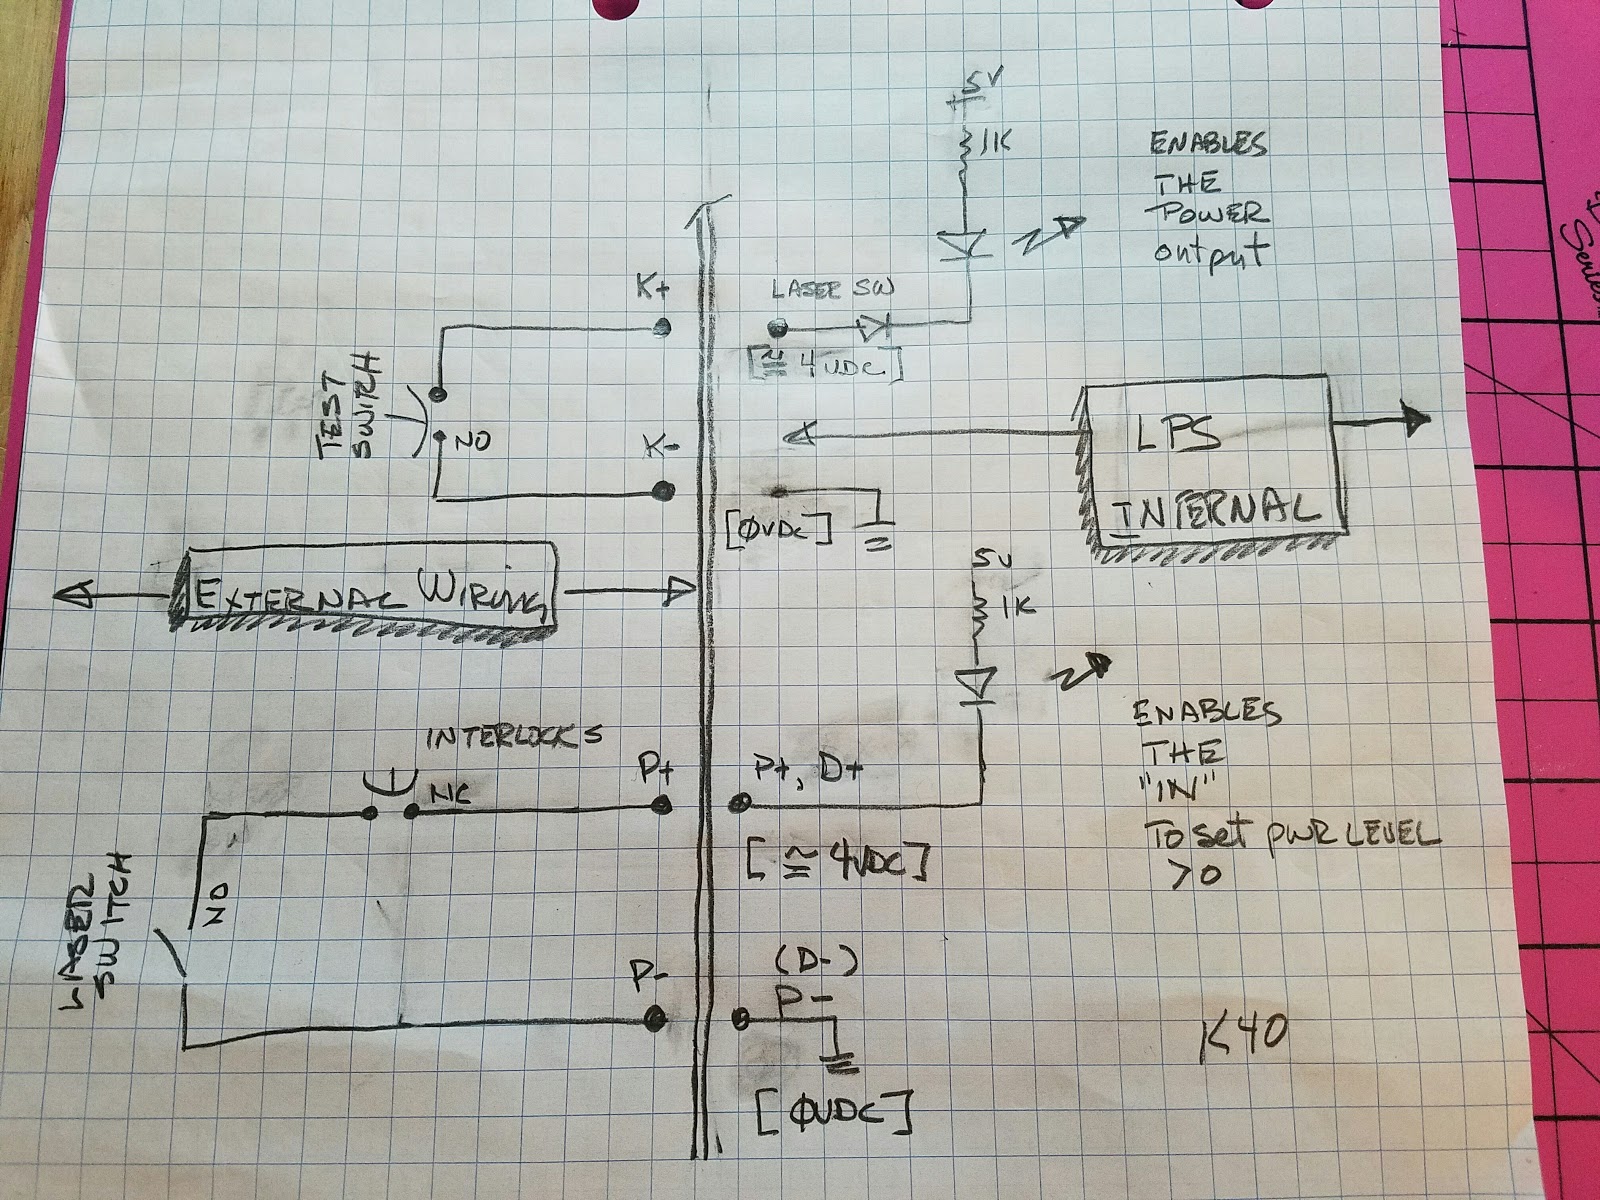 5V
1K
ENABLES
THE
POWER
output
K+
LASER SW
[≅ 4VDC]
TEST
SWITCH
NO
K-
[0VDC]
LPS
INTERNAL
EXTERNAL WIRING
5V
1K
INTERLOCKS
NC
P+
P+, D+
[≅ 4VDC]
ENABLES
THE
"IN"
To set PWR LEVEL
>0
LASER
SWITCH
NO
P-
(D-)
P-
[0VDC]
K40
Series